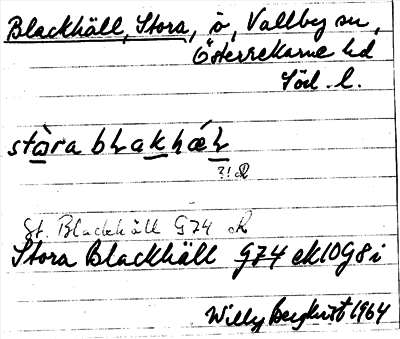 Blackhäll, Stora, ö, Vallby sn,
Österrekarne hd
Söd. l.
stòra bLakhǽL
?! R
St. Blackhäll G74 R
Stora Blackhäll G74 ek10G8i
Willy Bergkvist 1964